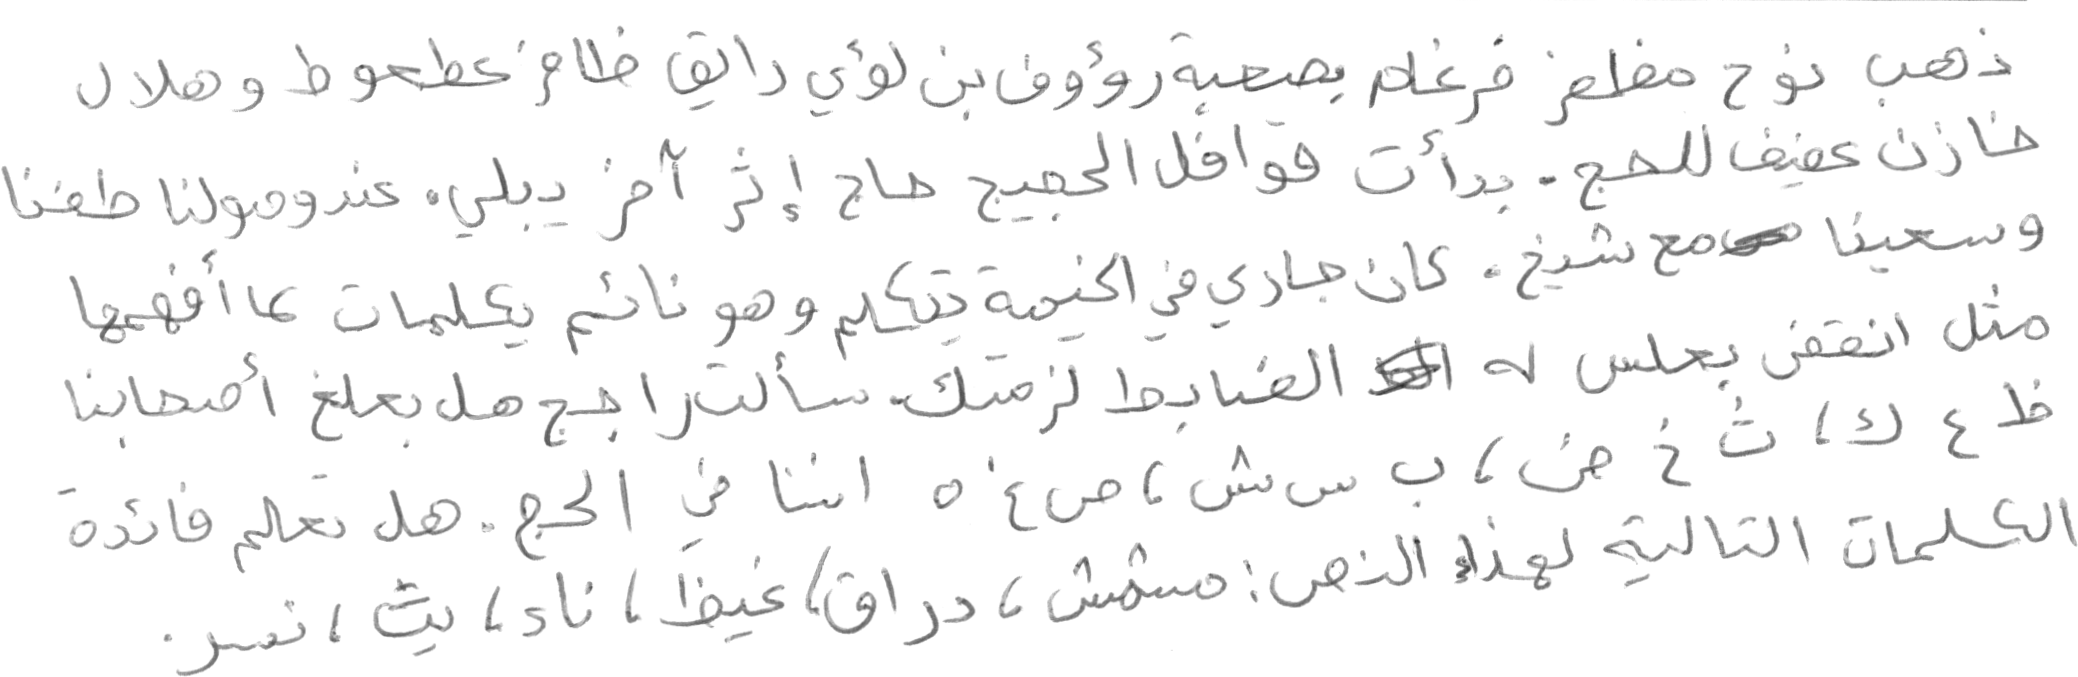 ذهب نوح مظفر ضرغام بصحبة رؤوف بن لؤي رائق ظافر عطعوط وهلال
خازن عفيف للحج. بدأت قوافل الحجيج حاج إثر آخر يبلي. عند وصولنا طفنا
وسعينا مع شيخ. كان جاري في الخيمة يتكلم وهو نائم بكلمات ما أفهمها
مثل انقض بعلس له الضابط لزمتك. سألت راجح هل بعلغ أصحابنا
ظ ع ك، ث خ ض، ب س ش، ص غ ه اننا في الحج. هل تعلم فائدة
الكلمات التالية لهذا النص: مشمش، دراق، غيظ، ناء، يث، نسر.